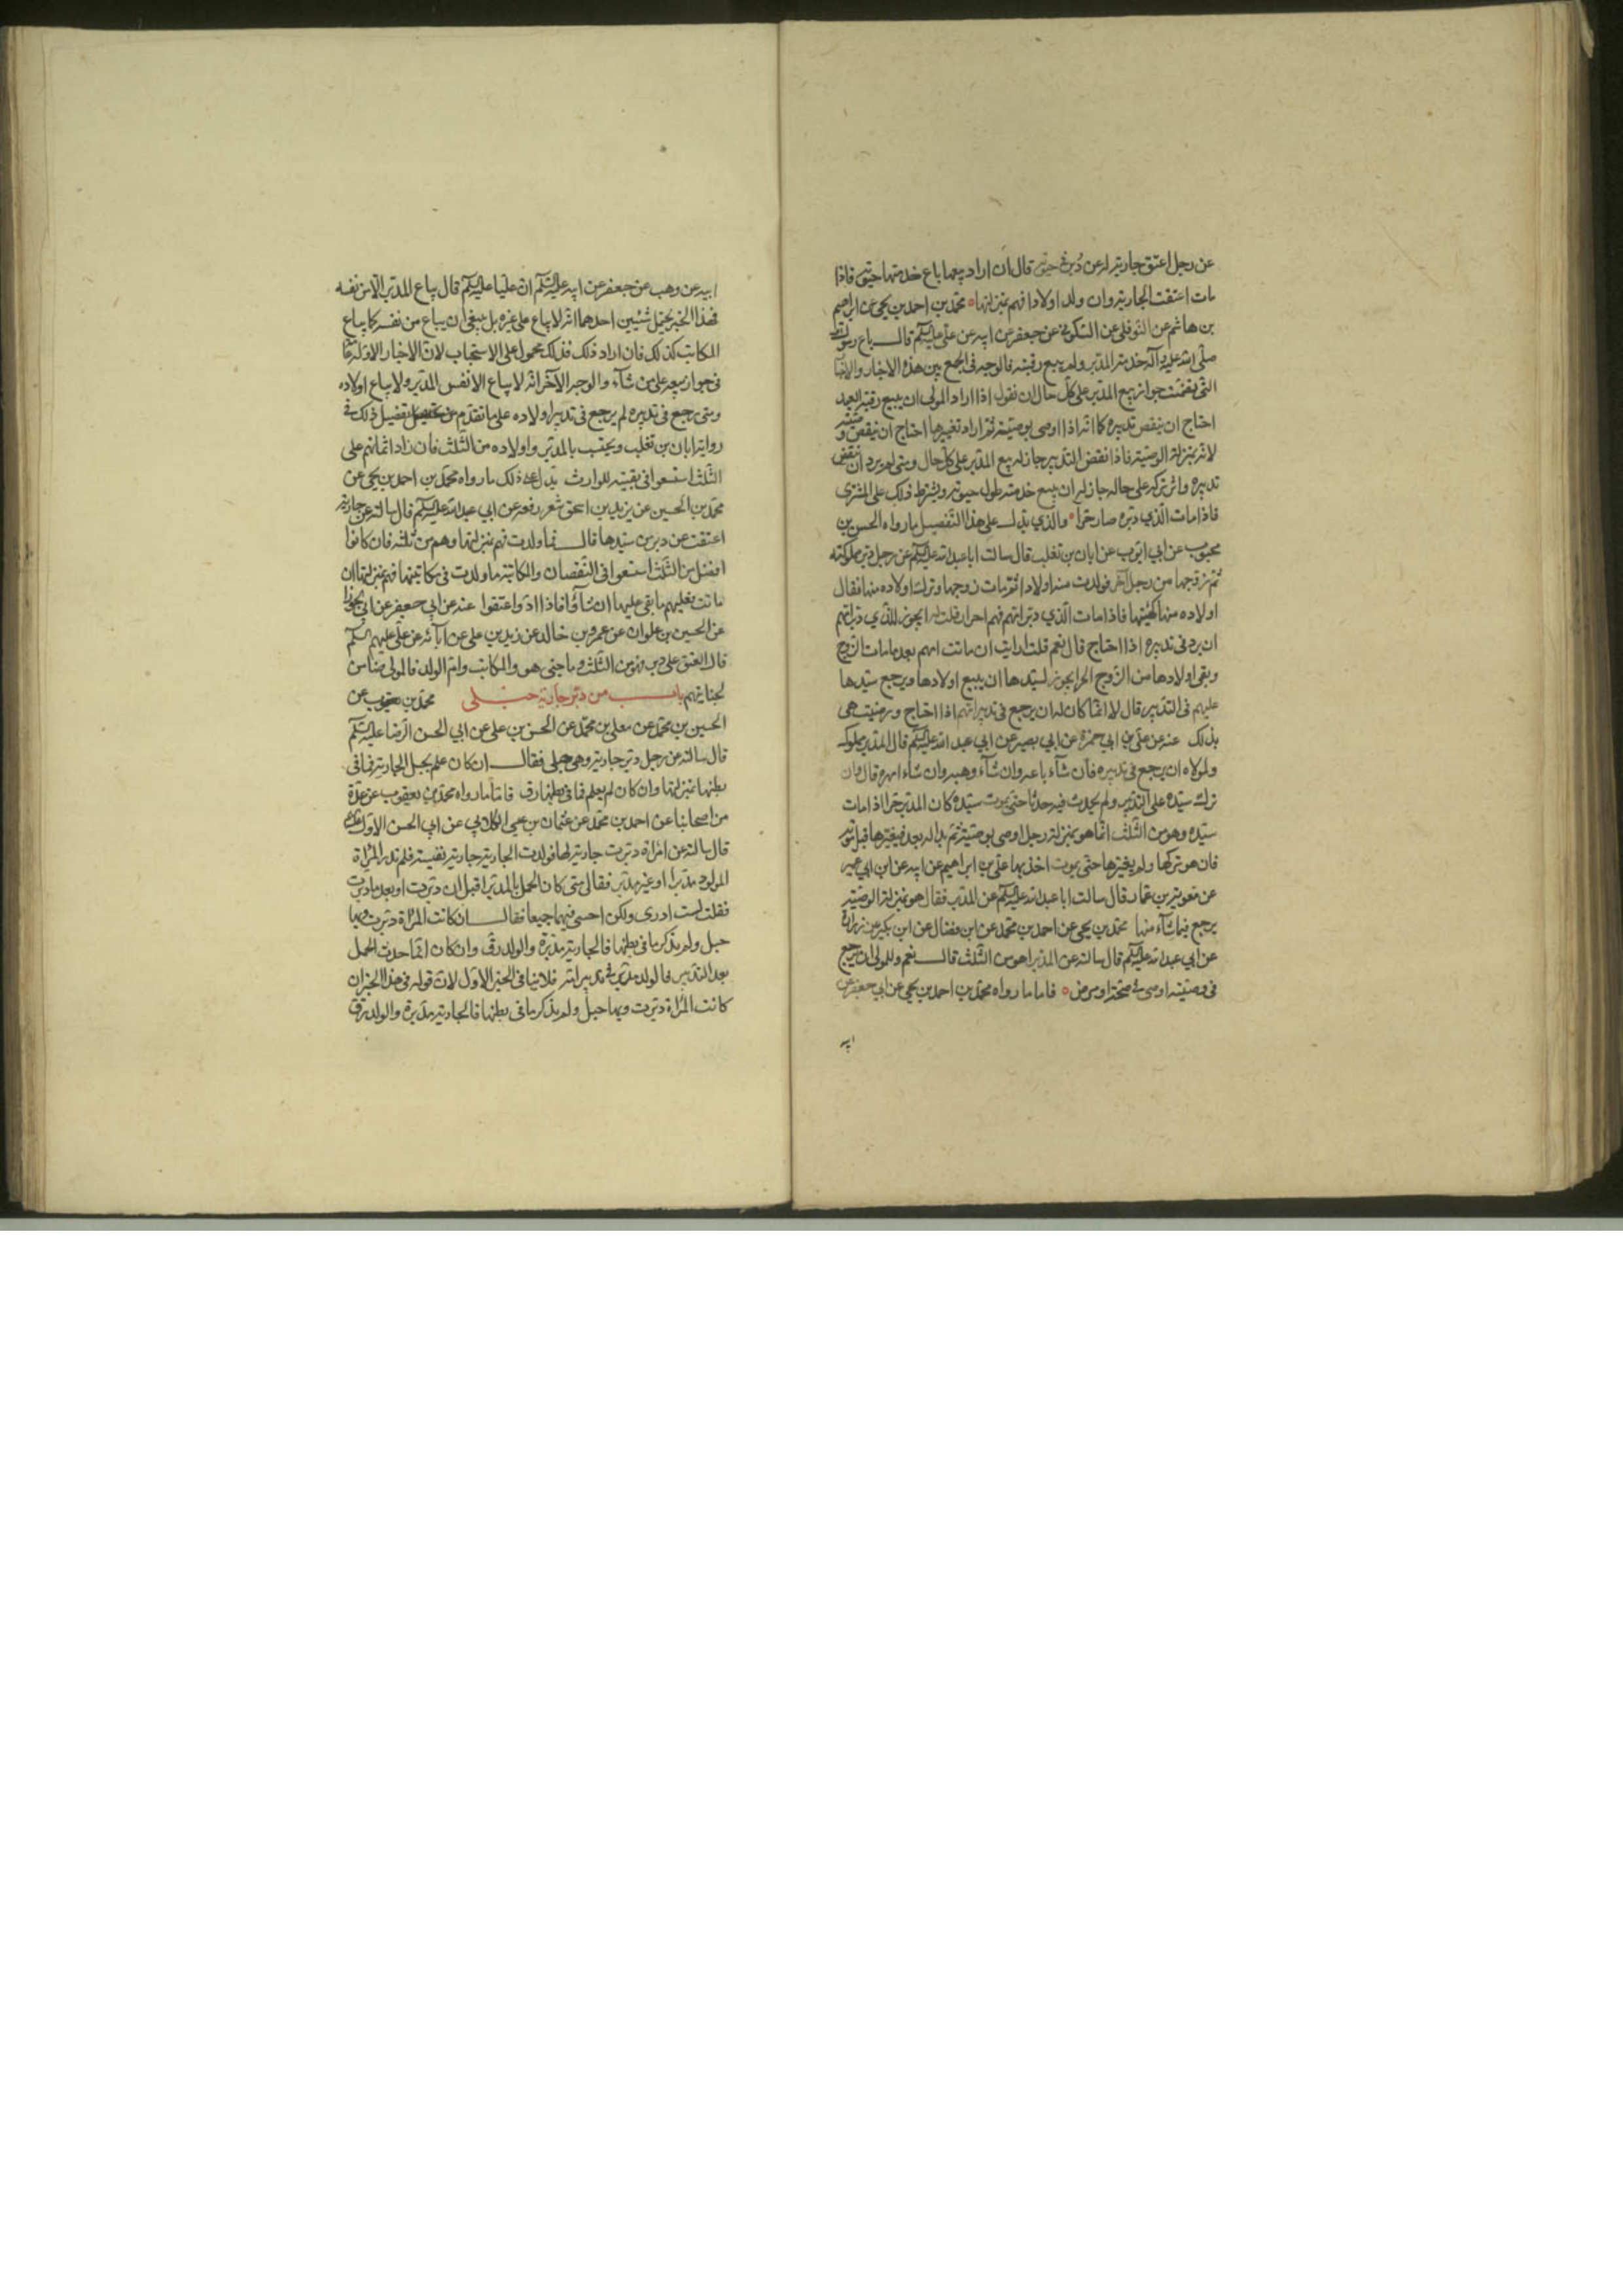 عن رجل اعتق جاريته له عن دبر في حيوته قال ان اراد بيعها باع خدمتها حيوته فاذا
مات اعتقت الجارية وان ولد اولادا فهم بمنزلتها محمد بن احمد بن يحيى عن ابراهيم
بن هاشم عن النوفلي عن السكوني عن جعفر عن ابيه عن علي عليه السلام قال باع رسول الله
صلى الله عليه وآله خدمة المدبر ولم يبع رقبته فالوجه في الجمع بين هذه الاخبار والاخبار
التي تضمنت جواز بيع المدبر على كل حال ان نقول اذا اراد المولى ان يبيع رقبة العبد
احتاج ان ينقض تدبيره كما انه اذا اوصى بوصية ثم اراد تغييرها احتاج ان ينقض وصيته
لانه بمنزلة الوصية فاذا نقض التدبير جاز له بيع المدبر على كل حال ومتى لم يرد ان ينقض
تدبيره واثر تركه على حاله جاز له ان يبيع خدمته طول حيوته ويشترط ذلك على المشتري
فاذا مات الذي دبره صار حرا والذي يدل على هذا التفصيل ما رواه الحسن بن
محبوب عن ابي ايوب عن ابان بن تغلب قال سالت ابا عبد الله عليه السلام عن رجل دبر مملوكته
ثم زوجها من رجل آخر فولدت منه اولادا ثم مات زوجها وترك اولاده منها فقال
اولاده منها كهيئتها فاذا مات الذي دبر امهم فهم احرار قلت له ايجوز للذي دبر امهم
ان يرد في تدبيره اذا احتاج قال نعم قلت ارايت ان ماتت امهم بعد ما مات الزوج
وبقي اولادها من الزوج الحر ايجوز لسيدها ان يبيع اولادها ويرجع سيدها
عليهم في التدبير قال لا انما كان له ان يرجع في تدبير امهم اذا احتاج ورضيت هي
بذلك عنه عن علي بن ابي حمزة عن ابي بصير عن ابي عبد الله عليه السلام قال المدبر مملوك
ولمولاه ان يرجع في تدبيره فان شآء باعه وان شآء وهبه وان شآء امهره قال وان
تركه سيده على التدبير ولم يحدث فيه حدثا حتى يموت سيده كان المدبر حرا اذا مات
سيده وهو من الثلث انما هو بمنزلة رجل اوصى بوصية ثم بدا له بعد فيغيرها قبل موته
فان هو تركها ولم يغيرها حتى يموت اخذ بها علي بن ابراهيم عن ابيه عن ابن ابي عمير
عن معوية بن عمار قال سالت ابا عبد الله عليه السلام عن المدبر فقال هو بمنزلة الوصية
يرجع فيما شآء منها محمد بن يحيى عن احمد بن محمد عن ابن فضال عن ابن بكير عن زرارة
عن ابي عبد الله عليه السلام قال سالته عن المدبر اهو من الثلث قال نعم وللمولى ان يرجع
في وصيته اوصى في صحة او مرض فاما ما رواه محمد بن احمد بن يحيى عن ابي جعفر عن
ابيه
ابيه عن وهب عن جعفر عن ابيه عليه السلام ان عليا عليه السلام قال لا يباع المدبر الا من نفسه
فهذا الخبر يحتمل شيئين احدهما انه لا يباع على غيره بل ينبغي ان يباع من نفسه كما يباع
المكاتب كذلك فان اراد ذلك فذلك محمول على الاستحباب لان الاخبار الاوله
في جواز بيعه على من شآء والوجه الآخر انه لا يباع الا نفس المدبر ولا يباع اولاده
ومتى رجع في تدبيره لم يرجع في تدبير اولاده على ما تقدم من تفصيل ذلك في
رواية ابان بن تغلب ويحتسب بالمدبر واولاده من الثلث فان زاد اثمانهم على
الثلث استسعوا في بقيته للوارث يدل على ذلك ما رواه محمد بن احمد بن يحيى عن
محمد بن الحسين عن يزيد بن اسحق شعر رفعه عن ابي عبد الله عليه السلام قال سالته عن جارية
اعتقت عن دبر من سيدها قال فما ولدت فهم بمنزلتها وهم من ثلثه فان كانوا
افضل من الثلث استسعوا في النقصان والمكاتبة ما ولدت في مكاتبتها فهم بمنزلتها ان
ماتت فعليهم ما بقي عليها ان شاؤا فاذا ادوا اعتقوا عنه عن ابي جعفر عن ابي الجوزا
عن الحسين بن علوان عن عمرو بن خالد عن زيد بن علي عن آبائه عن علي عليهم السلام
قال المعتق على دبر فهو من الثلث وما جنى هو والمكاتب وام الولد فالمولى ضامن
لجنايتهم باب من دبر جارية حبلى محمد بن يعقوب عن
الحسين بن محمد عن معلى بن محمد عن الحسن بن علي عن ابي الحسن الرضا عليه السلام
قال سالته عن رجل دبر جاريته وهي حبلى فقال ان كان علم بحبل الجارية فما في
بطنها بمنزلتها وان كان لم يعلم فما في بطنها رق فاما ما رواه محمد بن يعقوب عن عدة
من اصحابنا عن احمد بن محمد عن عثمان بن عيسى الكلابي عن ابي الحسن الاول عليه السلام
قال سالته عن امراة دبرت جارية لها فولدت الجارية جارية نفيسة فلم تدر المراة
المولود مدبرا او غير مدبر فقال لي متى كان الحمل بالمدبرا قبل ان دبرت او بعد ما دبرت
فقلت لست ادري ولكن اجبني فيهما جميعا فقال ان كانت المراة دبرت وبها
حبل ولم يذكر ما في بطنها فالجارية مدبرة والولد رق وان كان انما حدث الحمل
بعد التدبير فالولد مدبر في تدبير امه فلا ينافي الخبر الاول لان قوله في هذا الخبر ان
كانت المراة دبرت وبها حبل ولم يذكر ما في بطنها فالجارية مدبرة والولد رق